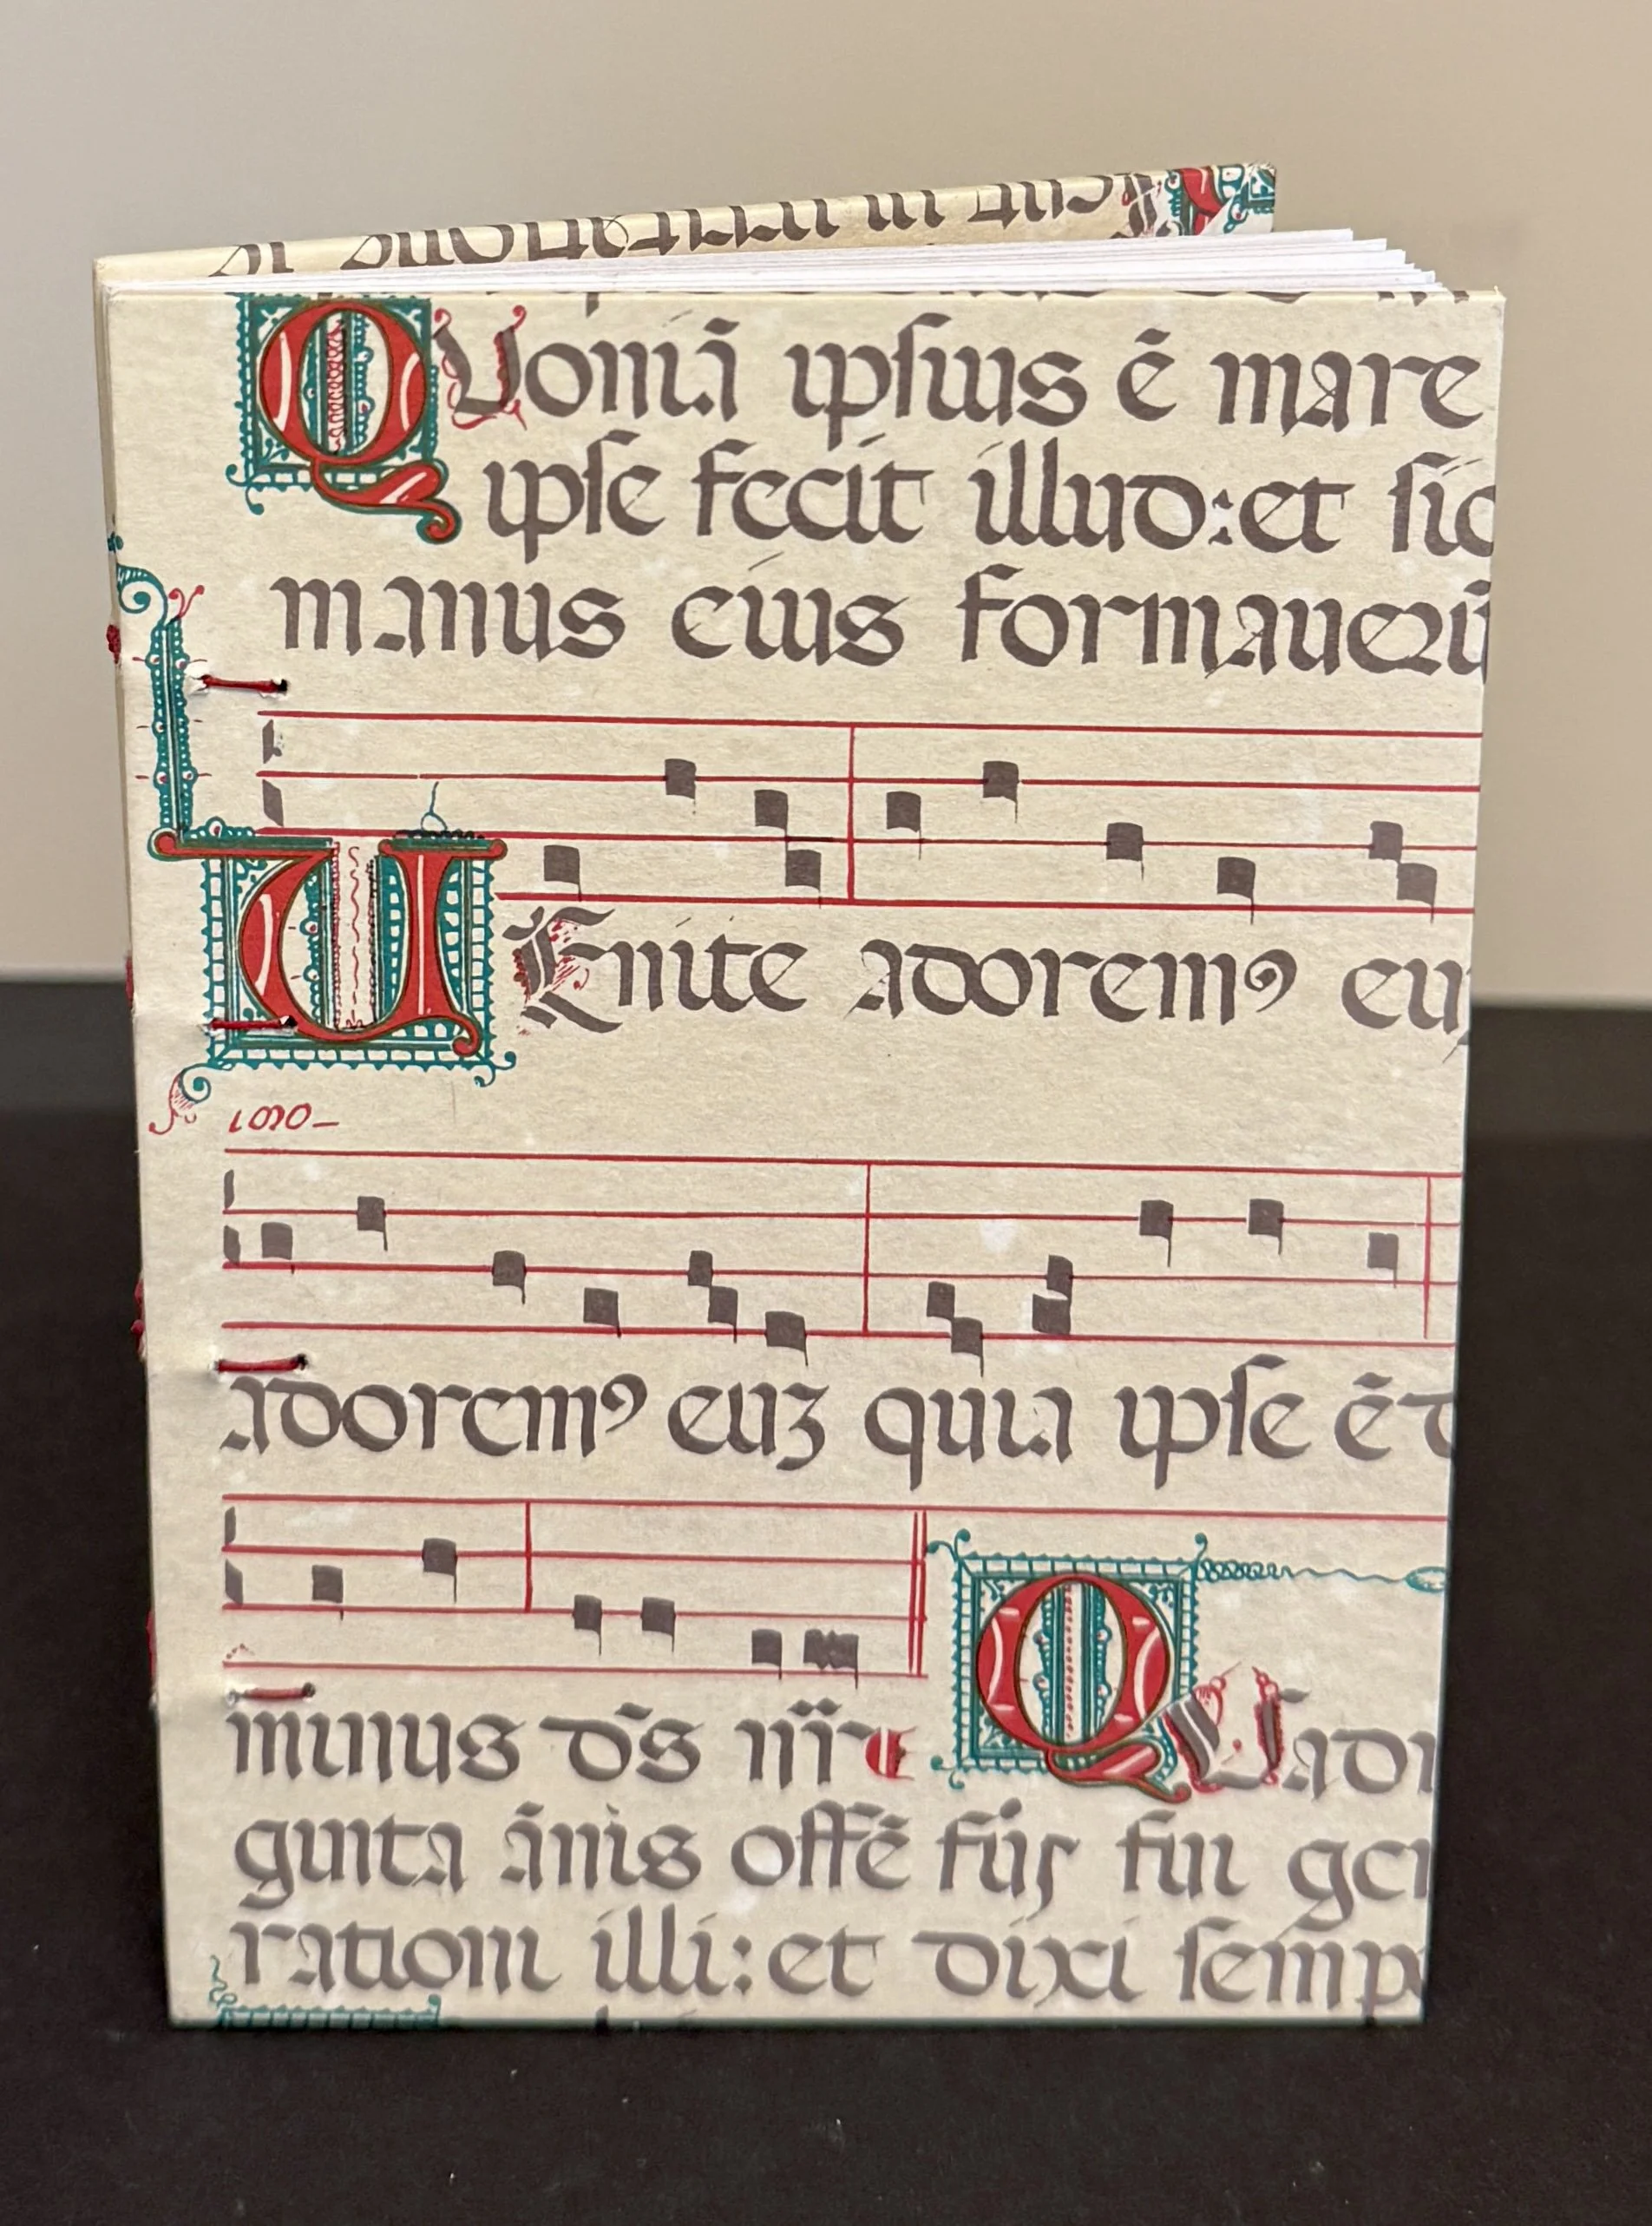 QUoniā ipſius ē mare
ipſe fecit illud:et ſic
manus eius formauerū
UEnite adoremꝰ eu
adoremꝰ euꝫ quia ipſe ē d
minus dn̄s nr̄ QUadr
ginta ānis offē fui
rationi illi:et dixi ſemp